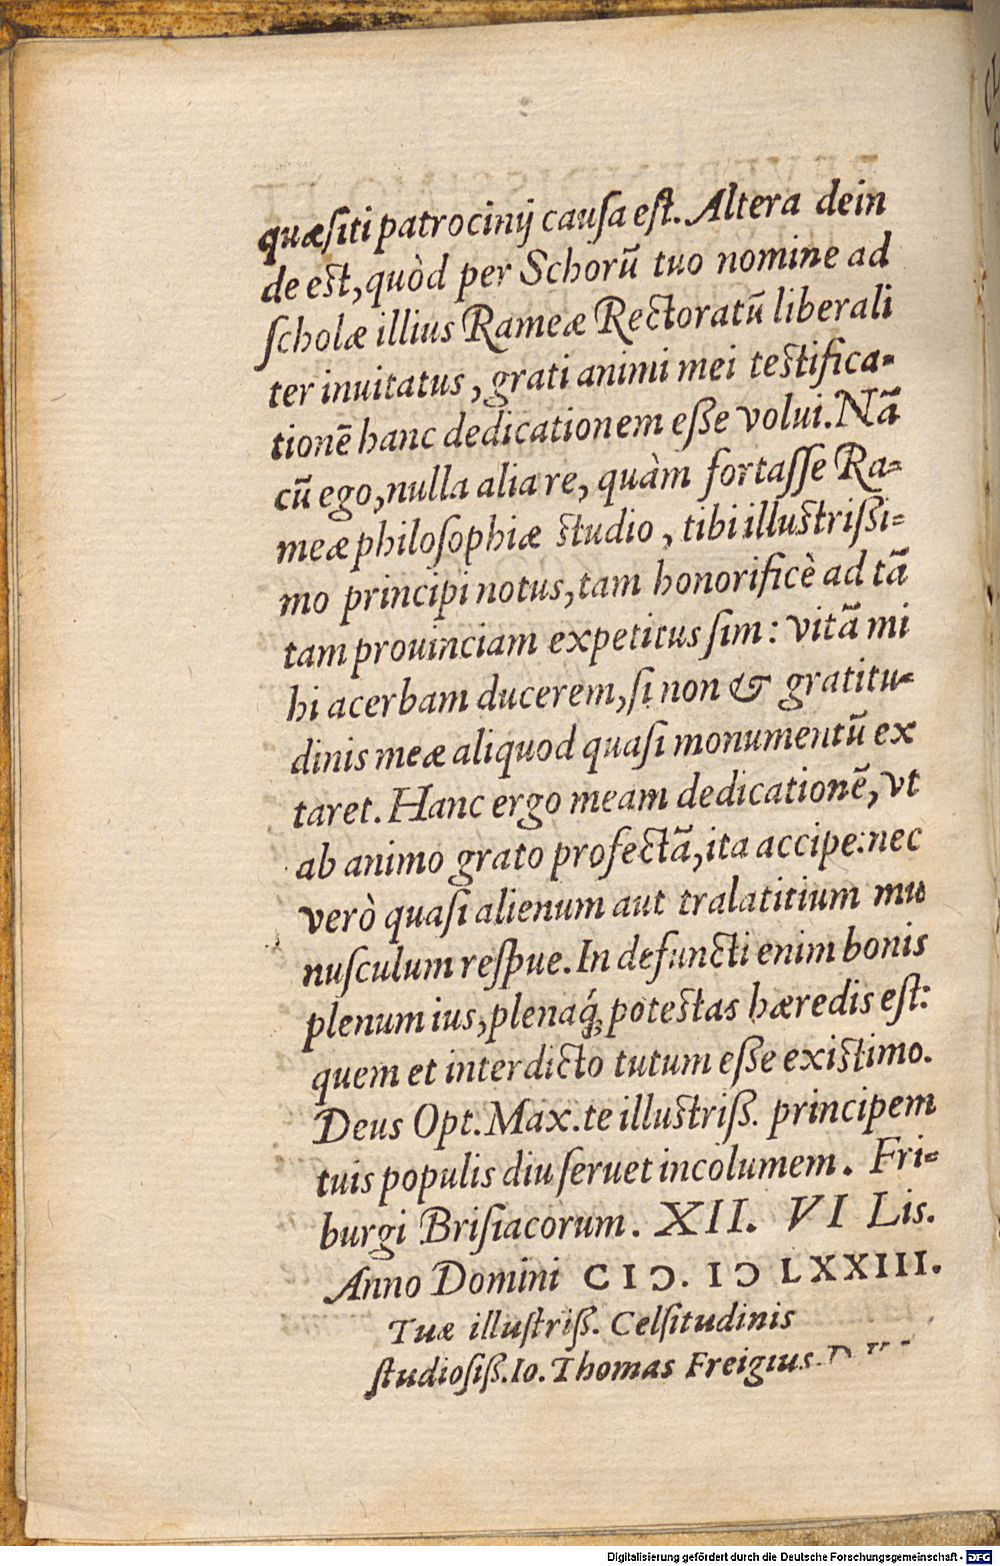 quæſiti patrocinij cauſa eſt. Altera dein
de est, quòd per Schorũ tuo nomine ad
ſcholæ illius Rameæ Rectoratũ liberali
ter inuitatus, grati animi mei testifica-
tionẽ hanc dedicationem eſſe volui. Nã
cũ ego, nulla alia re, quàm fortaſſe Ra-
meæ philoſophiæ studio, tibi illustriſſi-
mo principi notus, tam honorificè ad tã
tam prouinciam expetitus ſim: vitã mi
hi acerbam ducerem, ſi non & gratitu-
dinis meæ aliquod quaſi monumentũ ex
taret. Hanc ergo meam dedicationẽ, vt
ab animo grato profectã, ita accipe: nec
verò quaſi alienum aut tralatitium mu
nuſculum reſpue. In defuncti enim bonis
plenum ius, plenaq́; potestas hæredis eſt:
quem et interdicto tutum eſſe existimo.
Deus Opt. Max. te illustriß. principem
tuis populis diu ſeruet incolumem. Fri-
burgi Briſiacorum. XII. VI Lis.
Anno Domini CIƆ. IƆ LXXIII.
Tuæ illuſtriß. Celſitudinis
ſtudioſiß. Io. Thomas Freigius
Digitalisierung gefördert durch die Deutsche Forschungsgemeinschaft - DFG